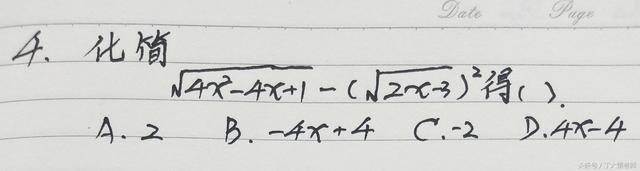 Date Page
4. 化简
√(4x²-4x+1) - (√(2x-3))² 得( ).
A. 2 B. -4x+4 C. -2 D. 4x-4